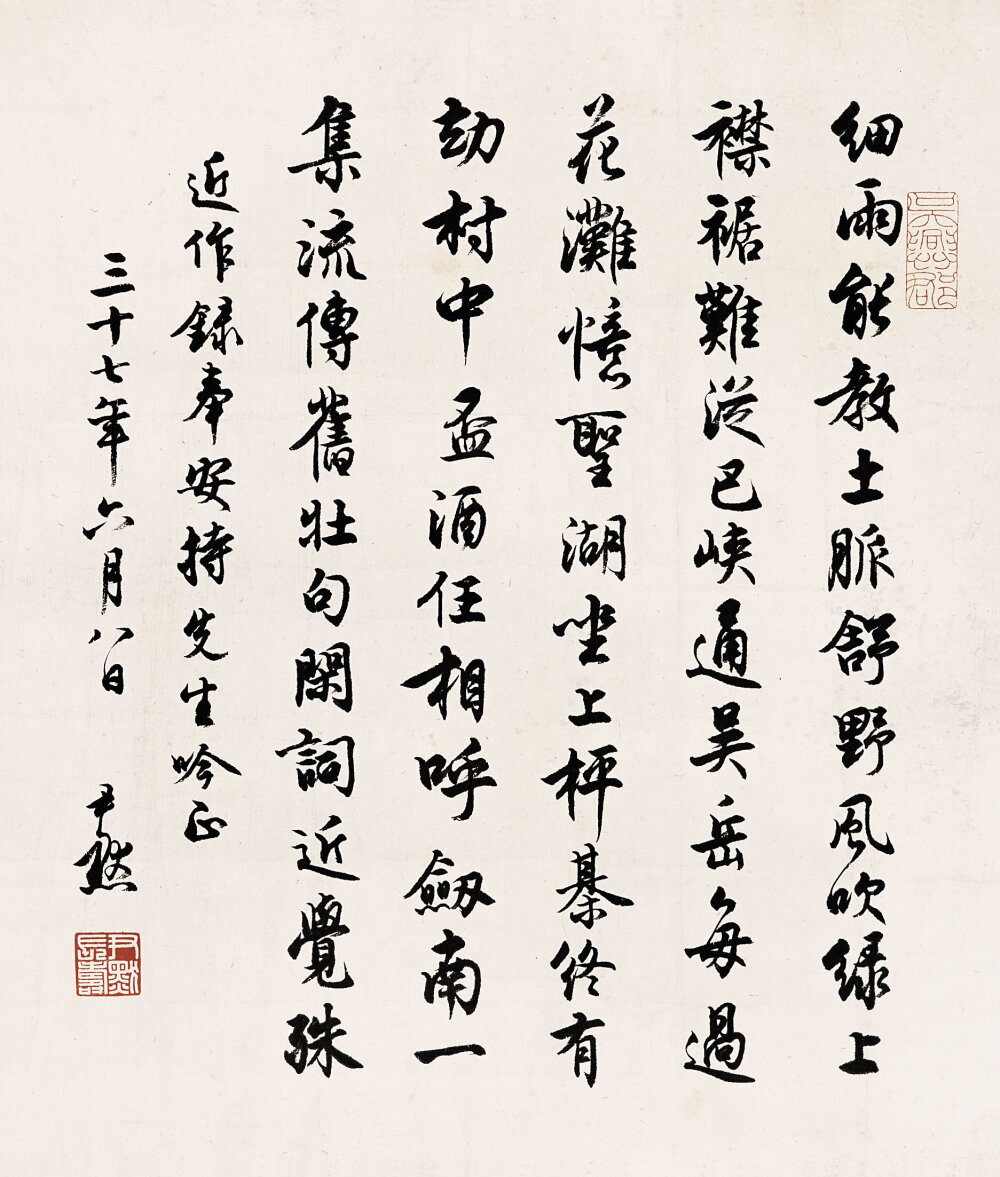 細雨能教土脈舒野風吹綠上
襟裾難從巴峽通吳岳每過
花灘憶聖湖坐上枰棊終有
劫村中盃酒任相呼劔南一
集流傳舊壯句閑詞近覺殊
近作録奉安持先生吟正
三十七年六月八日
尹默
尹默長壽